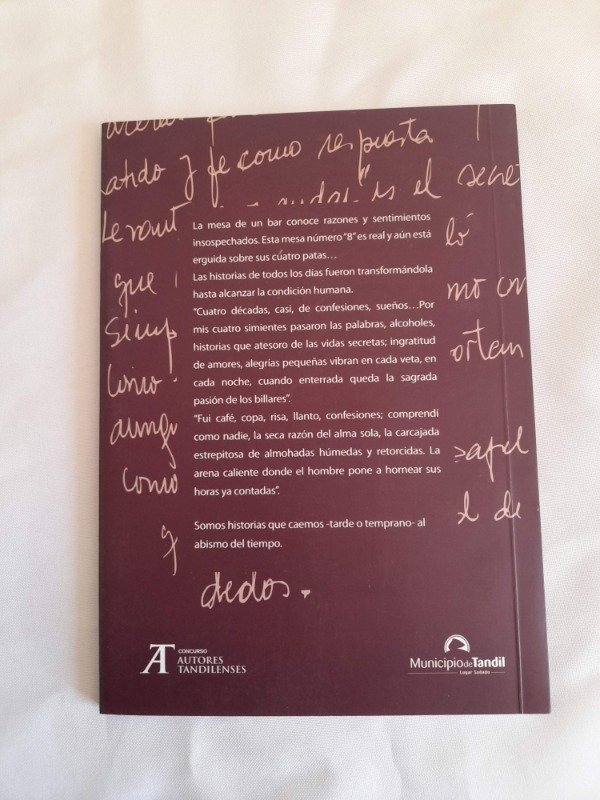 ando y fe como respuesta
es el secre
Levant
que
mo con
como
como
dedos.
La mesa de un bar conoce razones y sentimientos
insospechados. Esta mesa número "8" es real y aún está
erguida sobre sus cuatro patas...
Las historias de todos los días fueron transformándola
hasta alcanzar la condición humana.
"Cuatro décadas, casi, de confesiones, sueños...Por
mis cuatro simientes pasaron las palabras, alcoholes,
historias que atesoro de las vidas secretas; ingratitud
de amores, alegrías pequeñas vibran en cada veta, en
cada noche, cuando enterrada queda la sagrada
pasión de los billares".
"Fui café, copa, risa, llanto, confesiones; comprendí
como nadie, la seca razón del alma sola, la carcajada
estrepitosa de almohadas húmedas y retorcidas. La
arena caliente donde el hombre pone a hornear sus
horas ya contadas".
Somos historias que caemos -tarde o temprano- al
abismo del tiempo.
AT
CONCURSO
AUTORES
TANDILENSES
Municipio de Tandil
Lugar Soñado